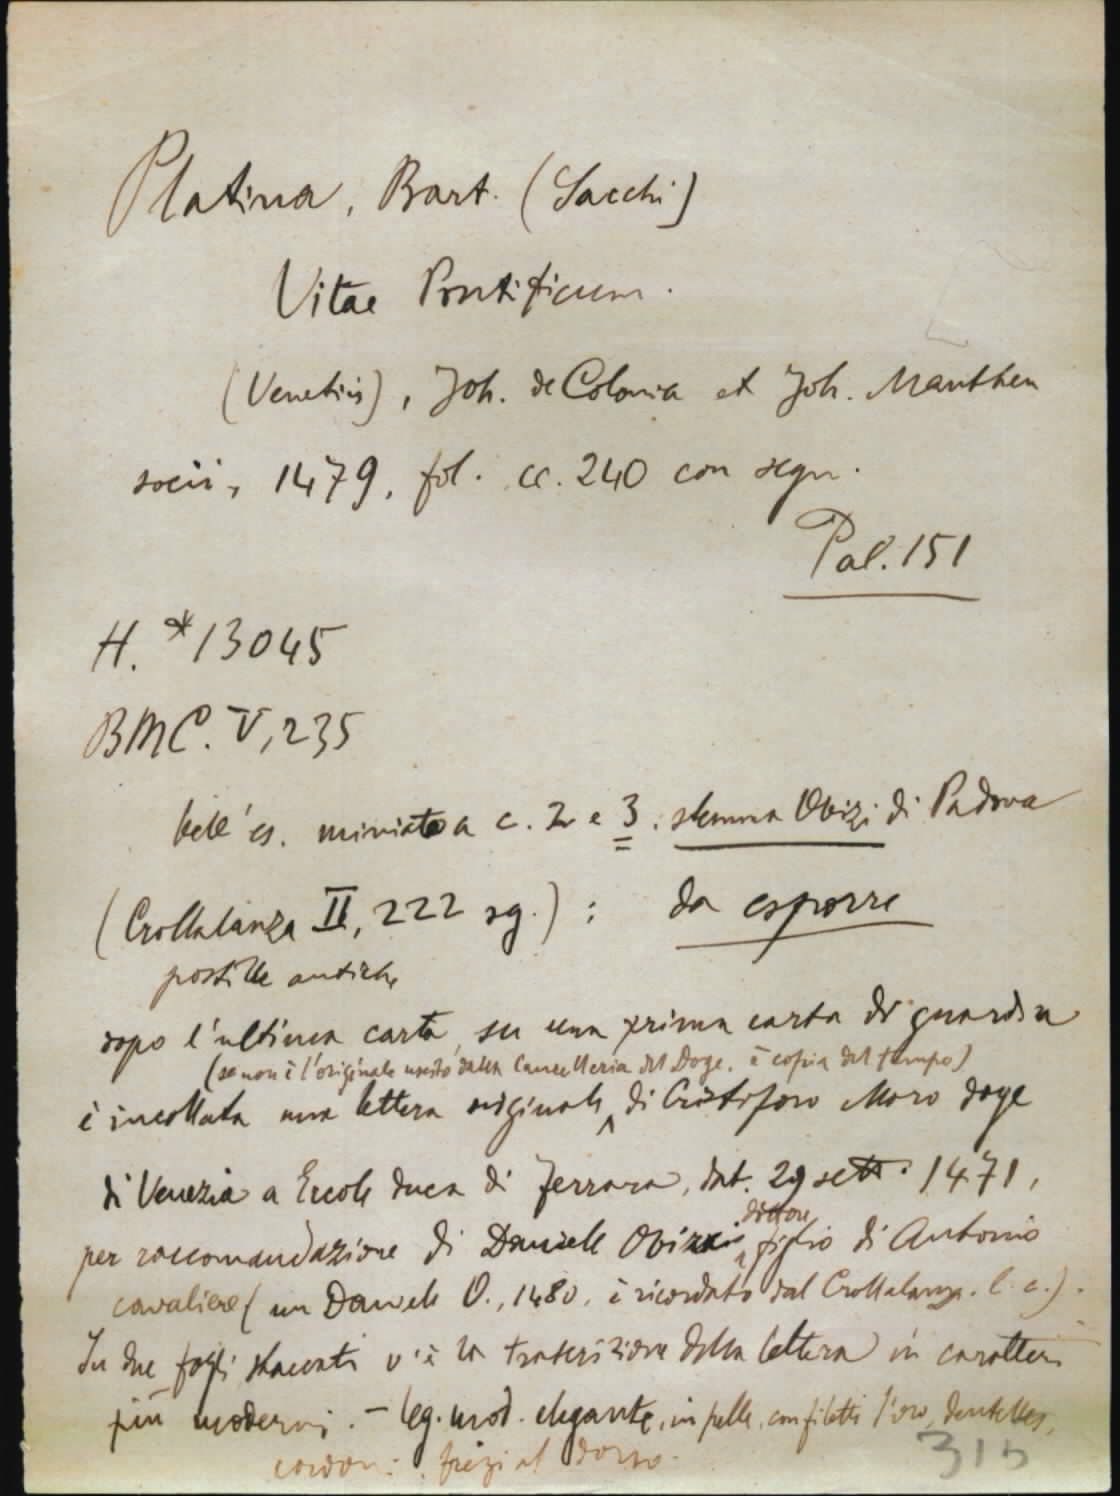 Platina, Bart. (Sacchi)
Vitae Pontificum.
(Venetiis), Joh. de Colonia et Joh. Manthen
socii, 1479, fol. cc. 240 con segn.
Pal. 151
H. *13045
BMC. V, 235
bell'es. miniato a c. 2 e 3. stemma Obizi di Padova
(Crollalanza II, 222 sg.): da esporre
postille antiche
dopo l'ultima carta, su una prima carta di guardia
(se non è l'originale uscito dalla Cancelleria del Doge, è copia del tempo)
è incollata una lettera originale di Cristoforo Moro doge
di Venezia a Ercole duca di Ferrara, dat. 29 sett. 1471,
dottore
per raccomandazione di Daniele Obizzi figlio di Antonio
cavaliere (un Daniele O., 1480, è ricordato dal Crollalanza. l. c.).
In due fogli staccati v'è la trascrizione della lettera in caratteri
più moderni. – leg. mod. elegante, in pelle, con filetti d'oro, dentelles,
cordoni, fregi al dorso.
315